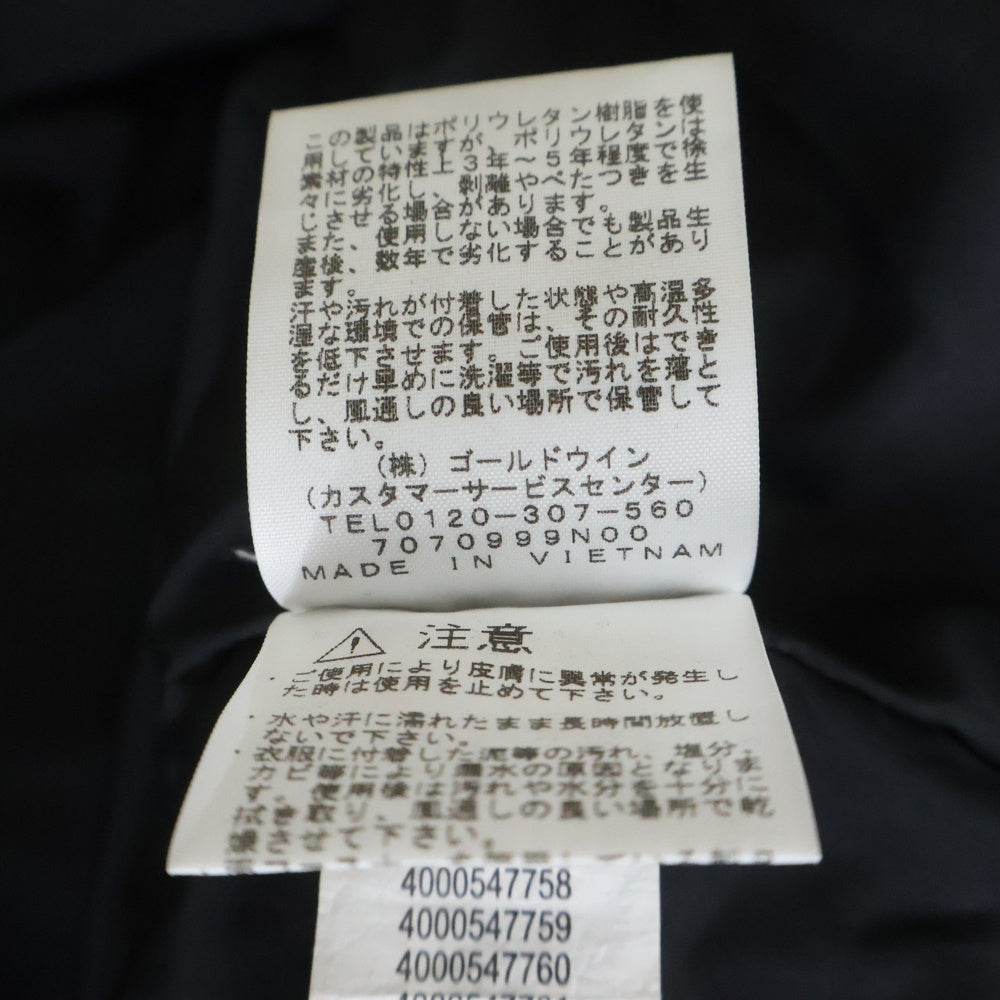 この製品はポリウレタン樹脂を使
用していますが、ポリウレタンは
素材の特性上、3～5年程度で徐
々に劣化し、剥離やべたつきを生
じさせる場合があります。
また、使用しない場合でも製品生
産後、数年で劣化することがあり
ます。
汗や汚れが付着した状態や高温多
湿な環境での保管は、その耐久性
を低下させます。ご使用後はでき
るだけ早めに洗濯等で汚れを落と
し、風通しの良い場所で保管して
下さい。
(株)ゴールドウイン
(カスタマーサービスセンター)
TEL0120-307-560
7070999N00
MADE IN VIETNAM
注意
・ご使用により皮膚に異常が発生し
た時は使用を止めて下さい。
・水や汗に濡れたまま長時間放置し
ないで下さい。
・衣服に付着した泥等の汚れ、塩分、
カビ等により漏水の原因となりま
す。使用後は汚れや水分を十分に
拭き取り、風通しの良い場所で乾
燥させて下さい。
4000547758
4000547759
4000547760